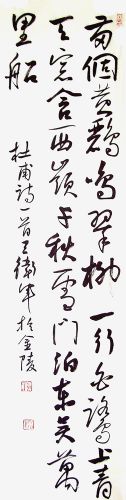 两個黄鸝鳴翠柳一行白鷺上青
天窓含西嶺千秋雪門泊東吳萬
里船
杜甫詩一首王衛軍於金陵